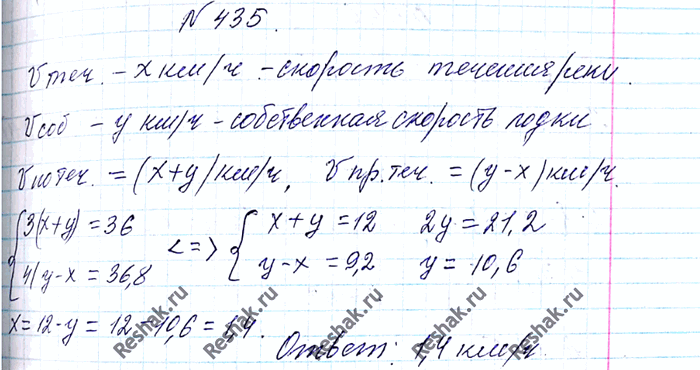 № 435.
Vтеч. – x км/ч – скорость течения реки.
Vсоб – y км/ч – собственная скорость лодки
Vпо теч. = (x+y) км/ч, Vпр. теч. = (y-x) км/ч.
{3(x+y) = 36 <=> {x+y = 12 2y = 21,2
4(y-x = 36,8 y-x = 9,2 y = 10,6
x = 12-y = 12-10,6 = 1,4.
Ответ: 1,4 км/ч
Reshak.ru Reshak.ru Reshak.ru Reshak.ru Reshak.ru